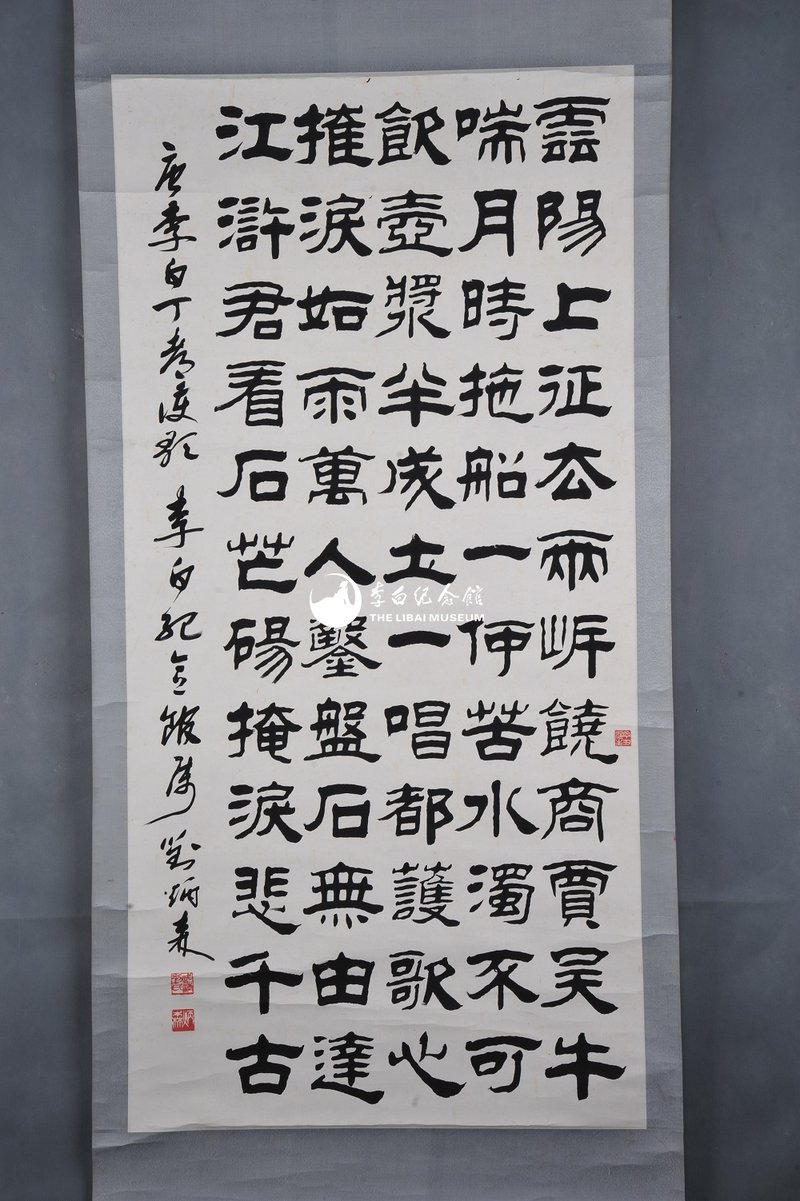 雲陽上征去兩岸饒商賈吳牛
喘月時拖船一何苦水濁不可
飲壺漿半成土一唱都護歌心
摧淚如雨萬人鑿盤石無由達
江滸君看石芒碭掩淚悲千古
唐李白丁都護歌 李白紀念館屬 劉炳森
李白纪念館
THE LIBAI MUSEUM